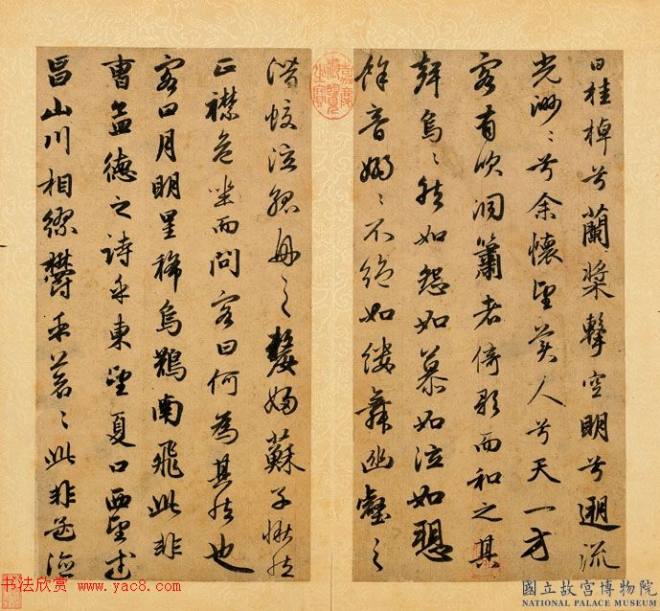 曰桂棹兮蘭槳擊空明兮遡流
光渺〻兮余懷望美人兮天一方
客有吹洞簫者倚歌而和之其
聲烏〻然如怨如慕如泣如愬
餘音嫋〻不絕如縷舞幽壑之
潛蛟泣孤舟之嫠婦蘇子愀然
正襟危坐而問客曰何為其然也
客曰月明星稀烏鵲南飛此非
曹孟德之詩乎東望夏口西望武
昌山川相繆鬱乎蒼〻此非孟德
嘉慶御覽之寶
书法欣赏 www.yac8.com
國立故宮博物院
NATIONAL PALACE MUSEUM